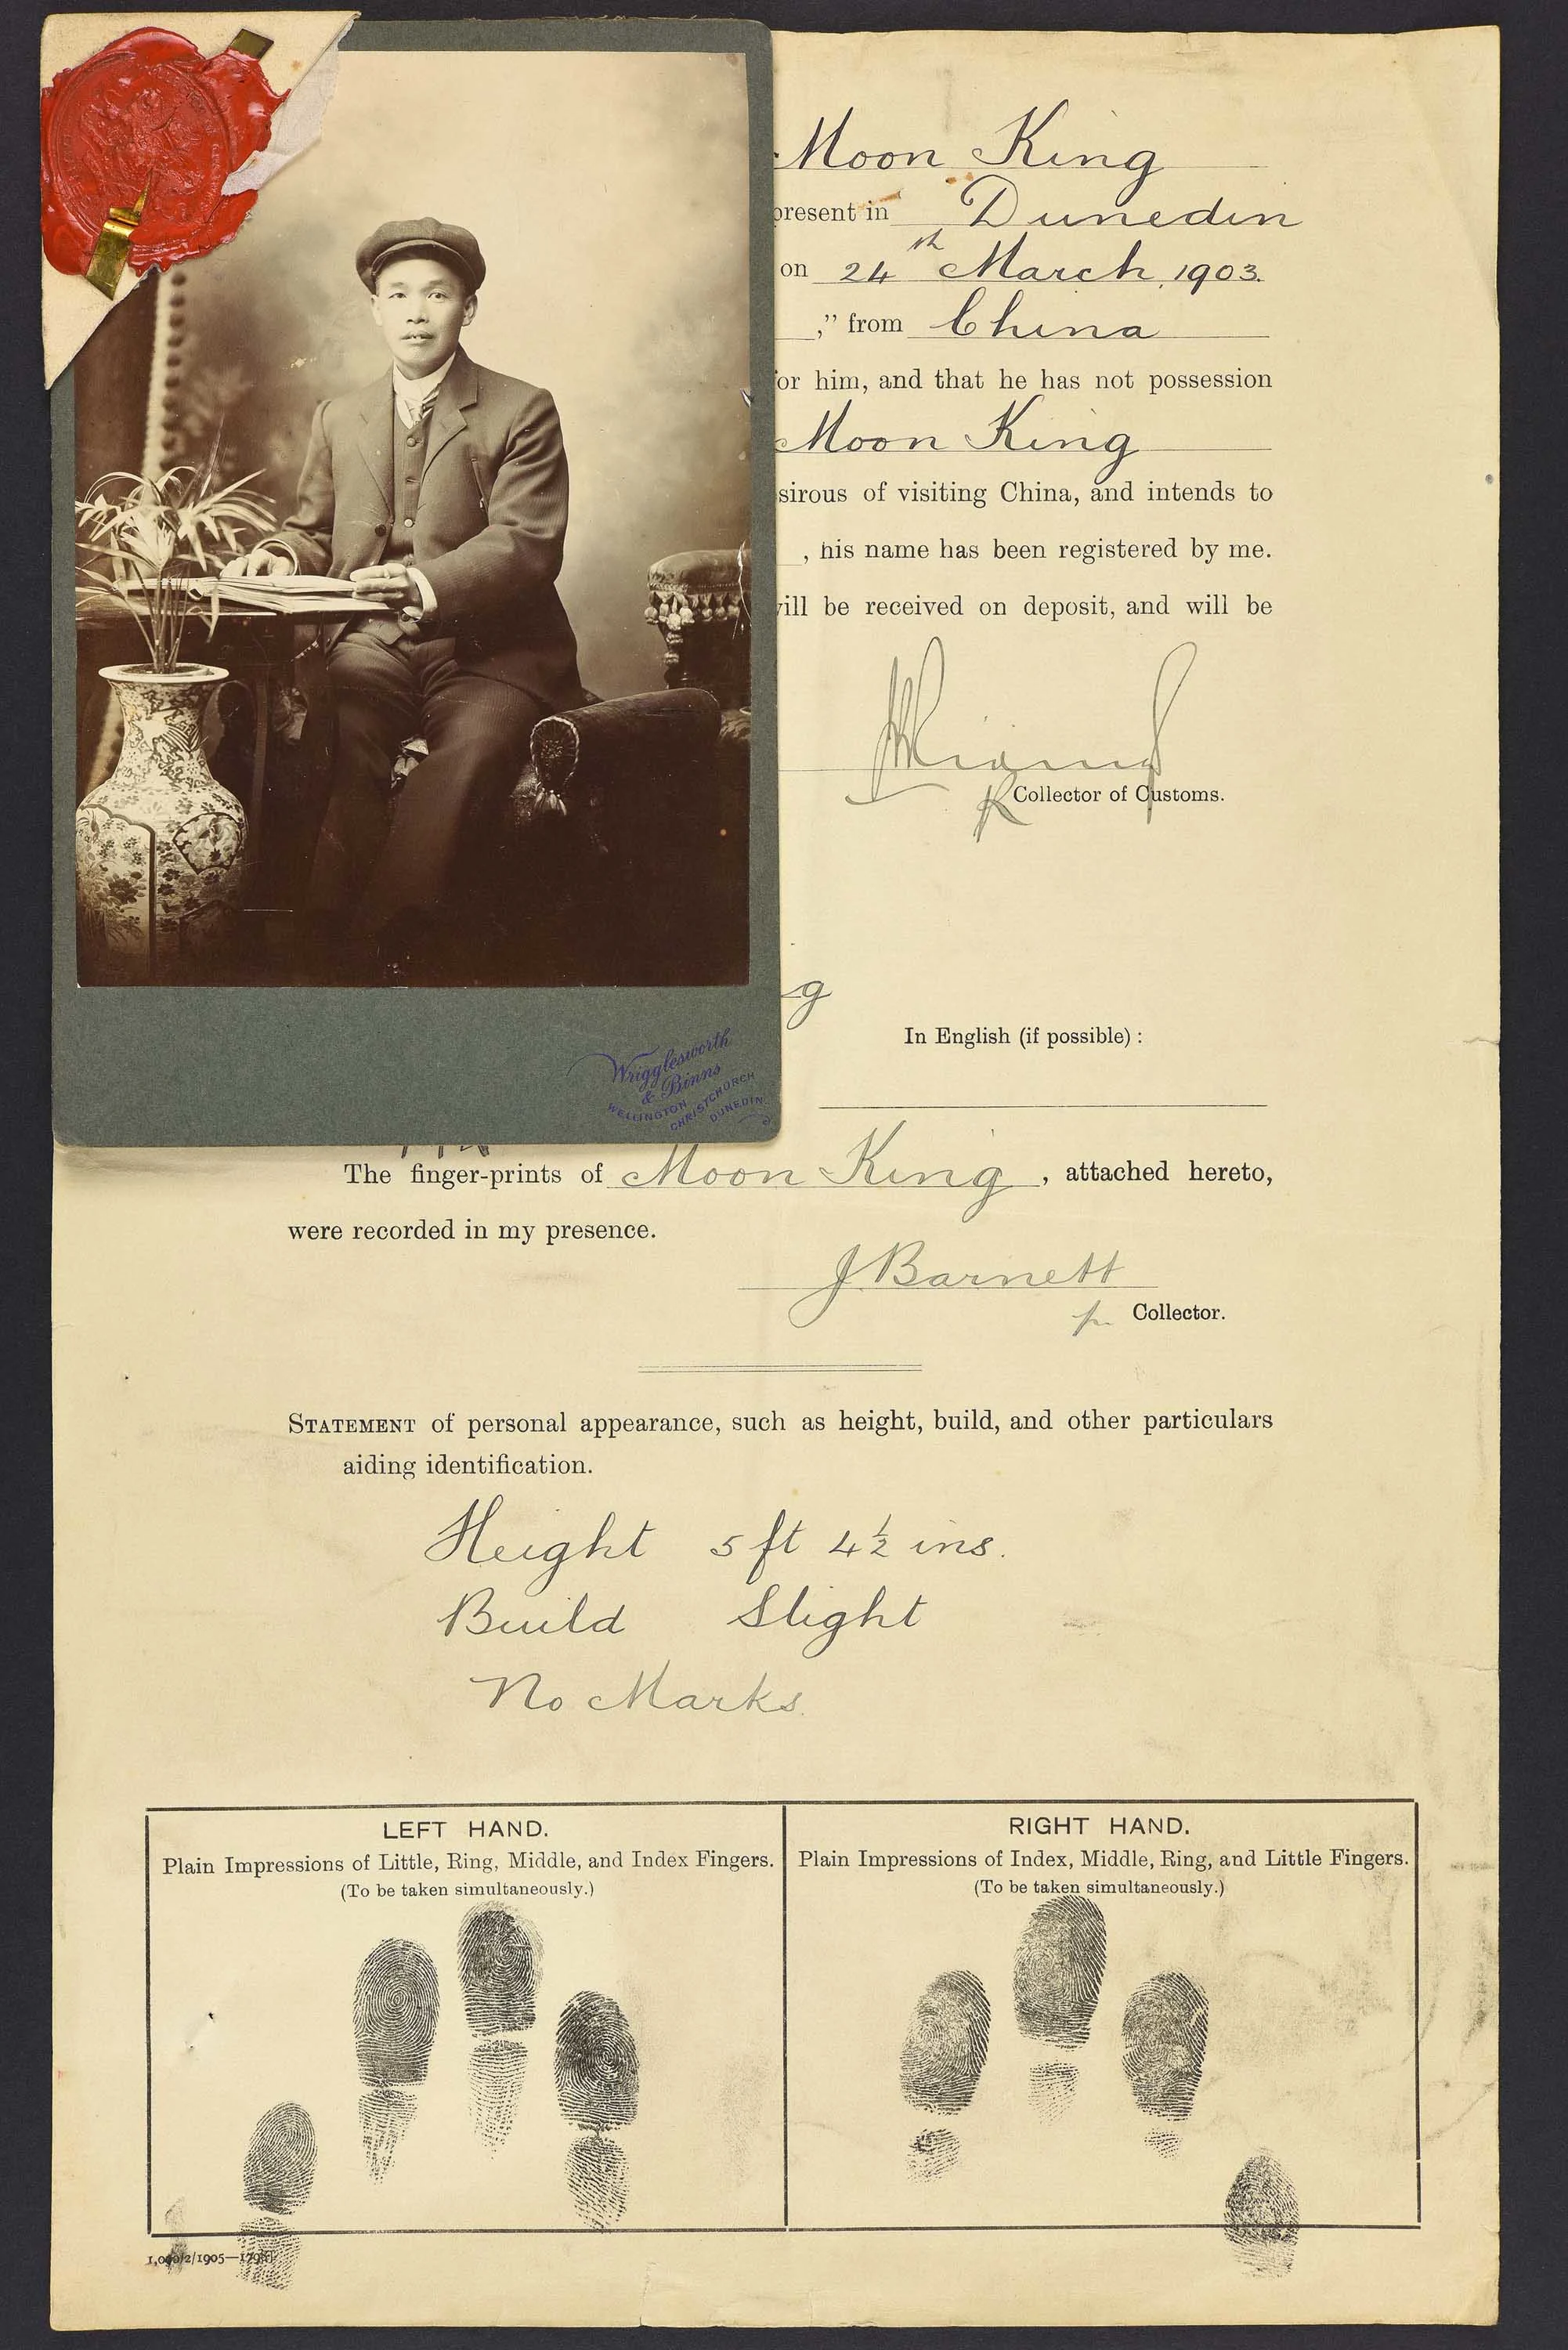 Moon King
present in Dunedin
on 24th March, 1903.
," from China
or him, and that he has not possession
Moon King
sirous of visiting China, and intends to
, his name has been registered by me.
ill be received on deposit, and will be
Collector of Customs.
g
In English (if possible) :
Wrigglesworth
& Binns
WELLINGTON
CHRISTCHURCH
DUNEDIN
The finger-prints of Moon King, attached hereto,
were recorded in my presence.
J Barnett
pr. Collector.
STATEMENT of personal appearance, such as height, build, and other particulars
aiding identification.
Height 5 ft 4½ ins.
Build Slight
No Marks.
LEFT HAND.
Plain Impressions of Little, Ring, Middle, and Index Fingers.
(To be taken simultaneously.)
RIGHT HAND.
Plain Impressions of Index, Middle, Ring, and Little Fingers.
(To be taken simultaneously.)
1,000/2/1905—